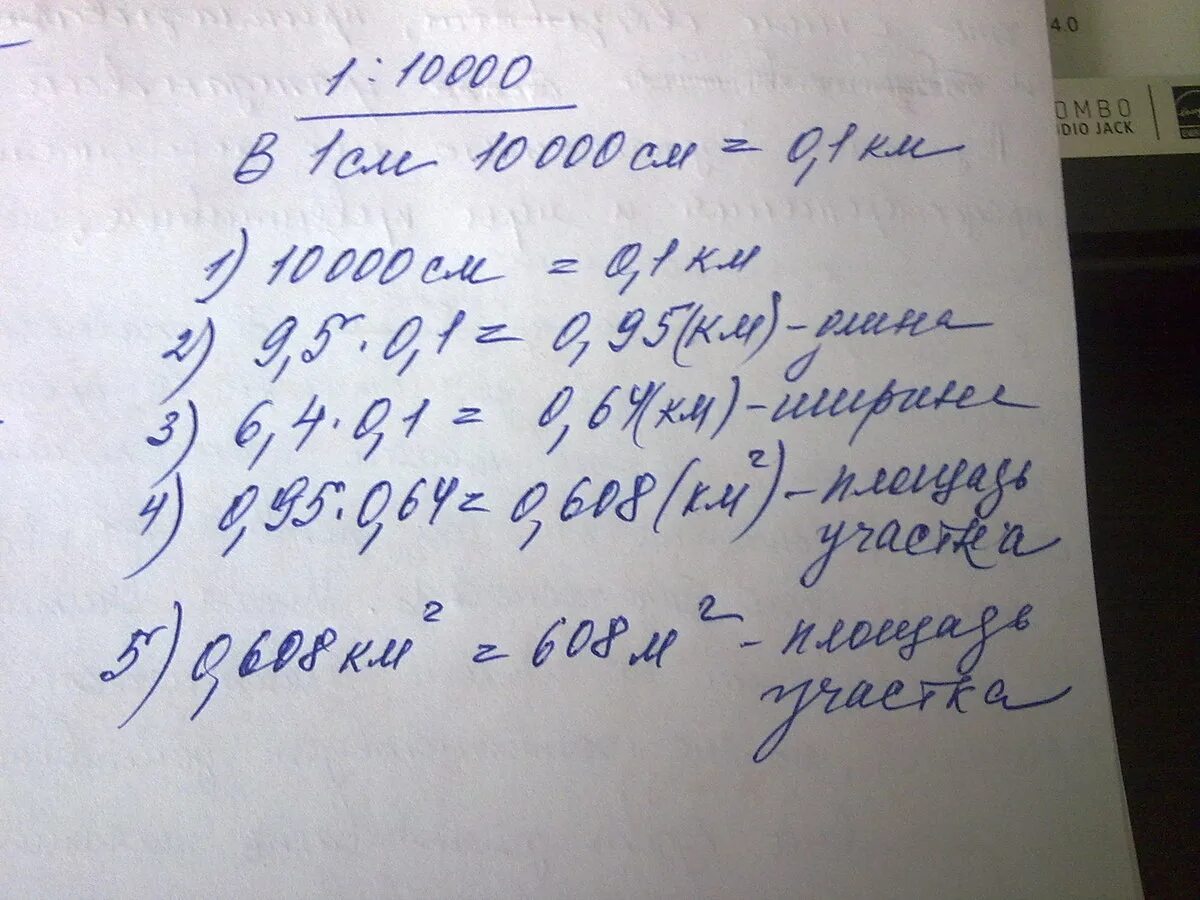 4.0
OMBO
DIO JACK
1:10000
В 1см 10000см = 0,1 км
1) 10000см = 0,1 км
2) 9,5·0,1 = 0,95(км) - длина
3) 6,4·0,1 = 0,64(км) - ширина
4) 0,95·0,64 = 0,608 (км²) - площадь
участка
5) 0,608 км² = 608 м² - площадь
участка